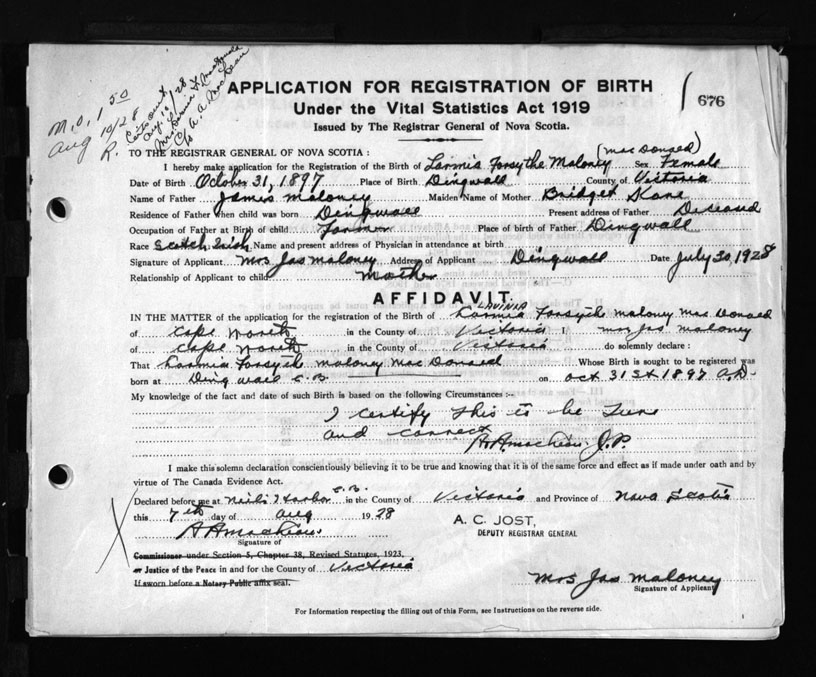 M.O. 1 50
Aug 10/28
R.
Aug. 10/28
c/o A. A. MacLean
APPLICATION FOR REGISTRATION OF BIRTH
Under the Vital Statistics Act 1919
Issued by The Registrar General of Nova Scotia.
676
(MacDonald)
TO THE REGISTRAR GENERAL OF NOVA SCOTIA :
I hereby make application for the Registration of the Birth of Larmia Forsythe Maloney Sex Female
Date of Birth October 31, 1897 Place of Birth Dingwall County of Victoria
Name of Father James Maloney Maiden Name of Mother Bridget Kane
Residence of Father when child was born Dingwall Present address of Father Diceasd
Occupation of Father at Birth of child Farmer Place of birth of Father Dingwall
Race Scotch Irish Name and present address of Physician in attendance at birth
Signature of Applicant Mrs Jas Maloney Address of Applicant Dingwall Date July 30, 1928
Relationship of Applicant to child Mother
AFFIDAVIT
LAVINIA
IN THE MATTER of the application for the registration of the Birth of Larmia Forsyth Maloney MacDonald
of Cape North in the County of Victoria I Mrs Jas Maloney
of Cape North in the County of Victoria do solemnly declare :
That Larmia Forsyth Maloney MacDonald Whose Birth is sought to be registered was
born at Dingwall C.B. on Oct 31st 1897 A.D.
My knowledge of the fact and date of such Birth is based on the following Circumstances :-
I certify this to be True
and correct
J.P.
I make this solemn declaration conscientiously believing it to be true and knowing that it is of the same force and effect as if made under oath and by
virtue of The Canada Evidence Act.
Declared before me at Neil's Harbor C.B. in the County of Victoria and Province of Nova Scotia
this 7th day of Aug 1928
A. C. JOST,
DEPUTY REGISTRAR GENERAL
Signature of
Commissioner under Section 5, Chapter 38, Revised Statutes, 1923,
or Justice of the Peace in and for the County of Victoria
If sworn before a Notary Public affix seal.
Mrs Jas Maloney
Signature of Applicant
For Information respecting the filling out of this Form, see Instructions on the reverse side.